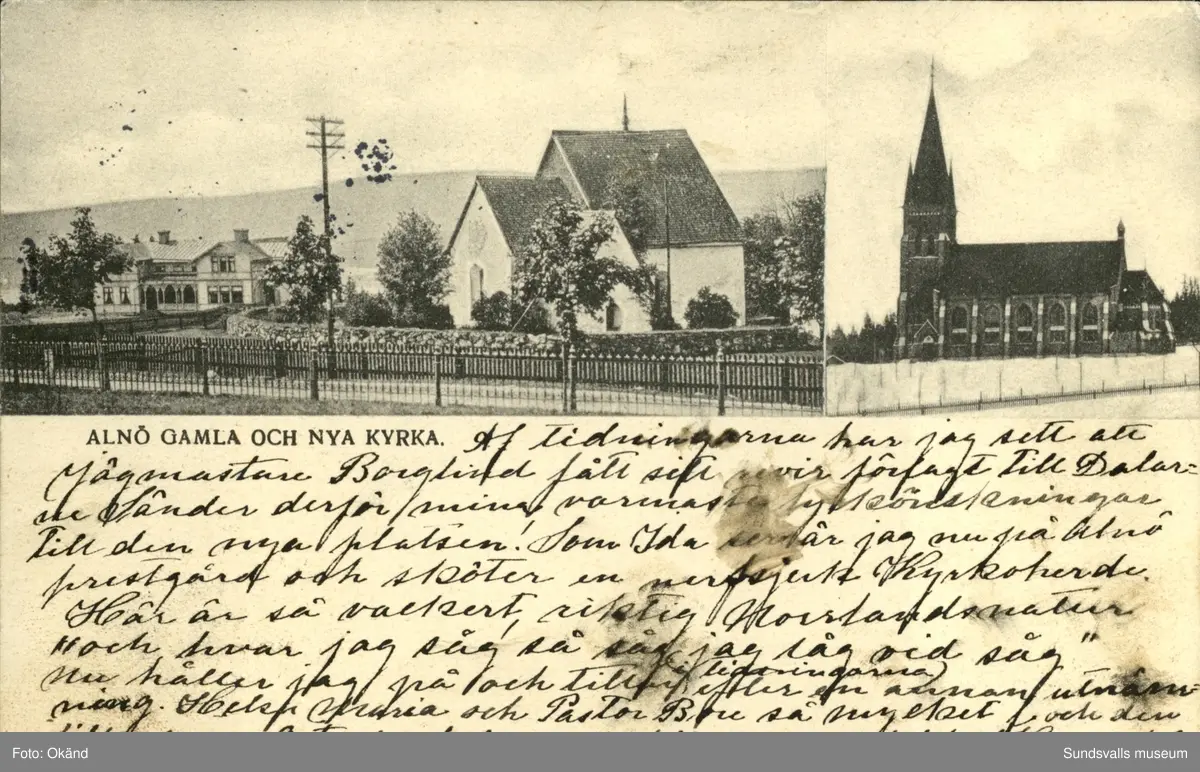 ALNÖ GAMLA OCH NYA KYRKA. Af tidningarna har jag sett att
Jägmastare Borglind fått sitt revir förlagt till Dalar=
ne Sänder derför mina varmaste lyckönskningar
till den nya platsen! Som Ida ser är jag nu på Alnö
prestgård och sköter en nervsjuk Kyrkoherde.
Här är så vackert, riktig Norrlandsnatur
"och hvar jag såg så såg jag såg vid såg"
nu håller jag på och tittar i tidningarna efter en annan utnäm=
ning. Helsa Maria och Pastor så mycket, och den
Foto: Okänd
Sundsvalls museum